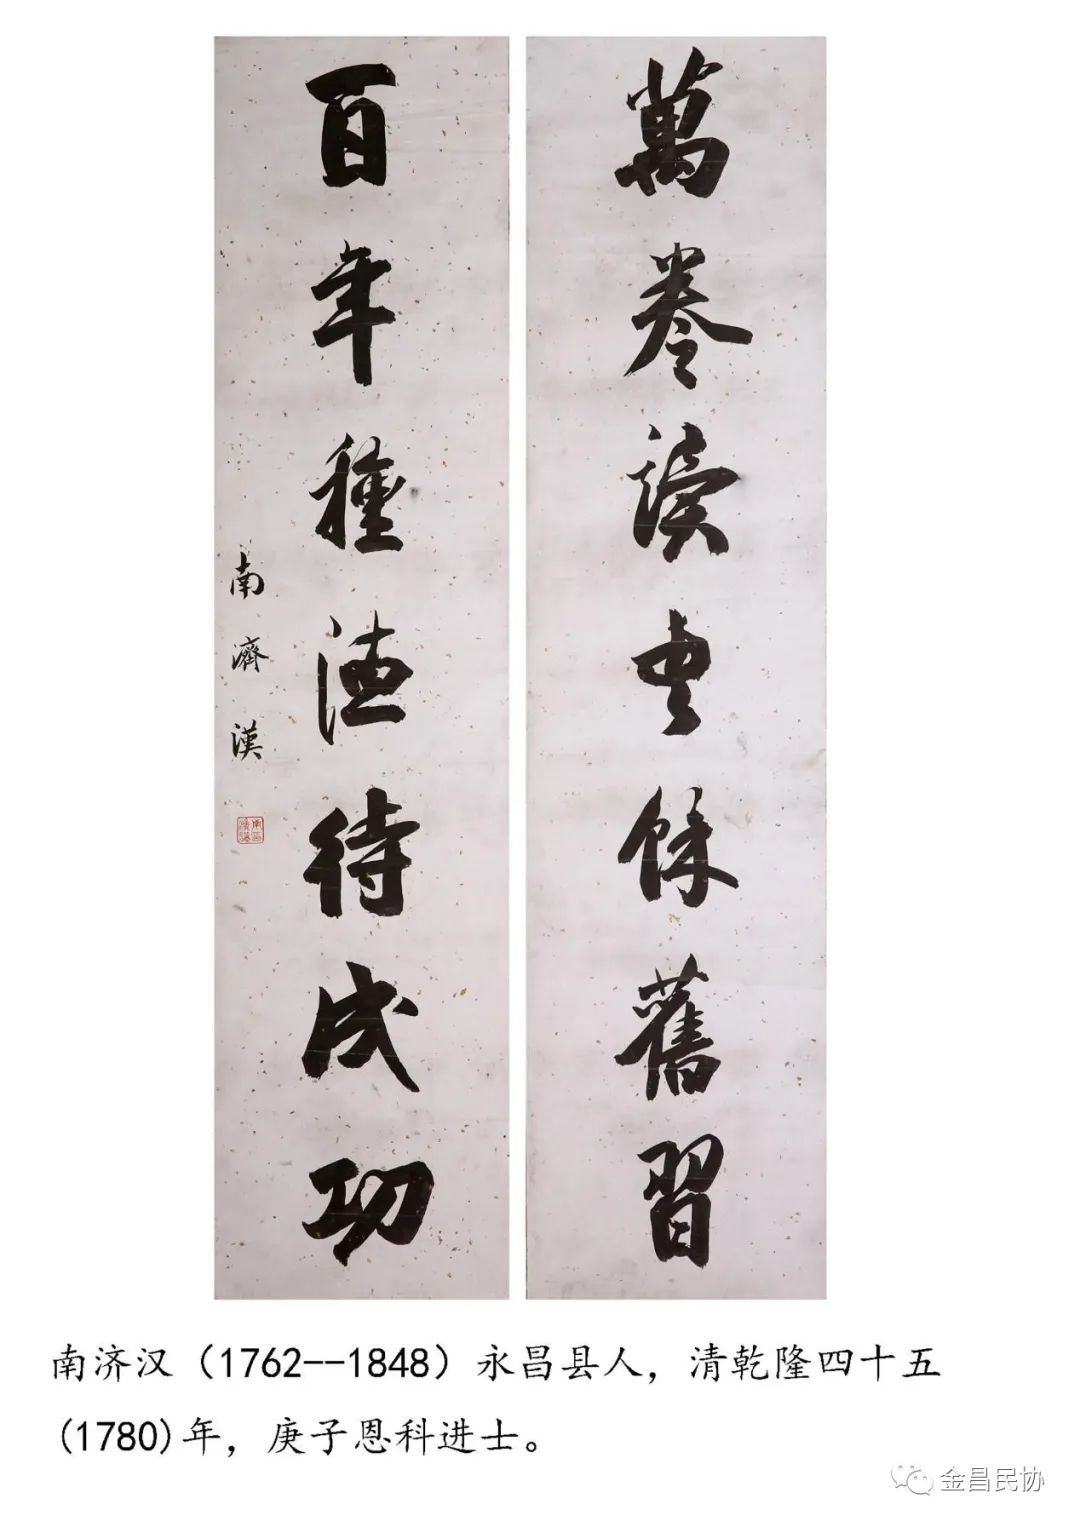 萬卷讀書餘舊習
百年種德待成功
南濟漢
南济汉（1762--1848）永昌县人，清乾隆四十五
(1780)年，庚子恩科进士。
金昌民协